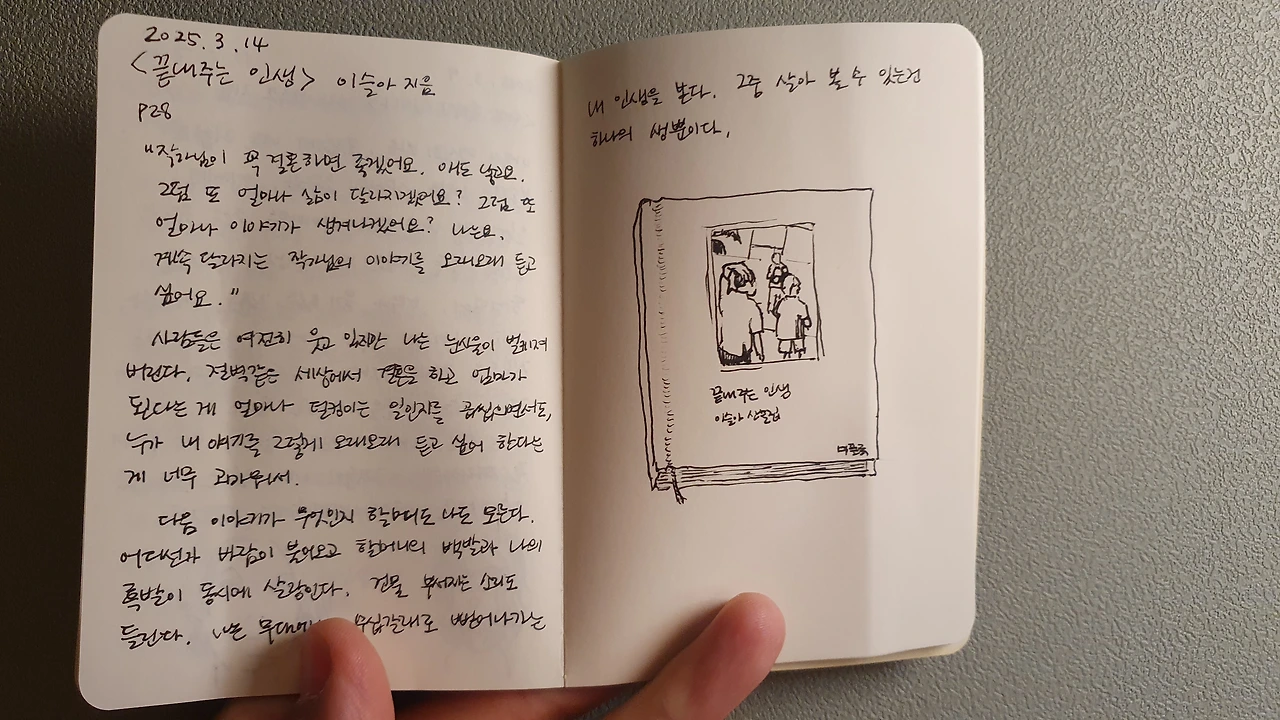 2025. 3. 14
<끝내주는 인생> 이슬아 지음
P28
"작가님이 꼭 결혼하면 좋겠어요. 애도 낳고요.
그럼 또 얼마나 삶이 달라지겠어요? 그럼 또
얼마나 이야기가 생겨나겠어요? 나는요,
계속 달라지는 작가님의 이야기를 오래오래 듣고
싶어요."
사람들은 여전히 웃고 있지만 나는 눈시울이 벌게져
버린다. 절벽같은 세상에서 결혼을 하고 엄마가
된다는 게 얼마나 덜컹이는 일인지를 곱씹으면서도,
누가 내 얘기를 그렇게 오래오래 듣고 싶어 한다는
게 너무 고마워서.
다음 이야기가 무엇인지 할머니도 나도 모른다.
어디선가 바람이 불어오고 할머니의 백발과 나의
흑발이 동시에 살랑인다. 건물 부서지는 소리도
들린다. 나는 무대에서 수십갈래로 뻗어나가는
내 인생을 본다. 그중 살아 볼 수 있는건
하나의 생뿐이다.
끝내주는 인생
이슬아 산문집